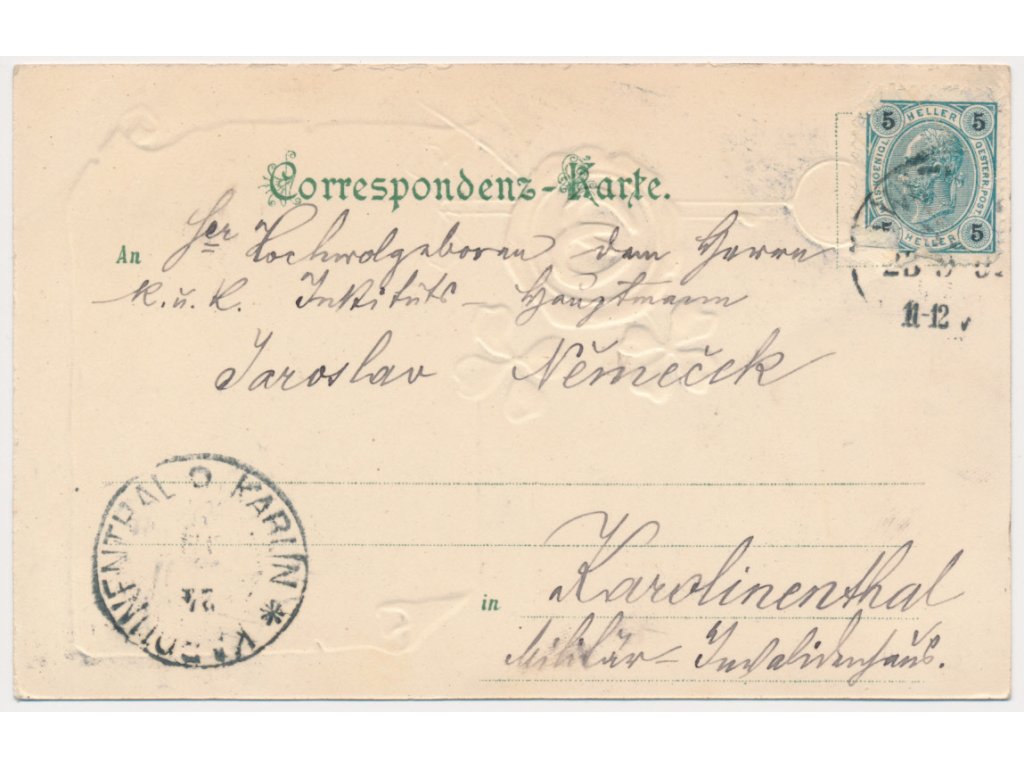 Correspondenz-Karte.
An Sr Hochwolgeboren dem Herrn
k. u. k. Instituts- Hauptmann
Jaroslav Němeček
in Karolinenthal
Militär-Invalidenhaus.
5 HELLER 5
OESTERR. POST
5
HELLER
11-12
KARLIN * KAROLINENTHAL
24